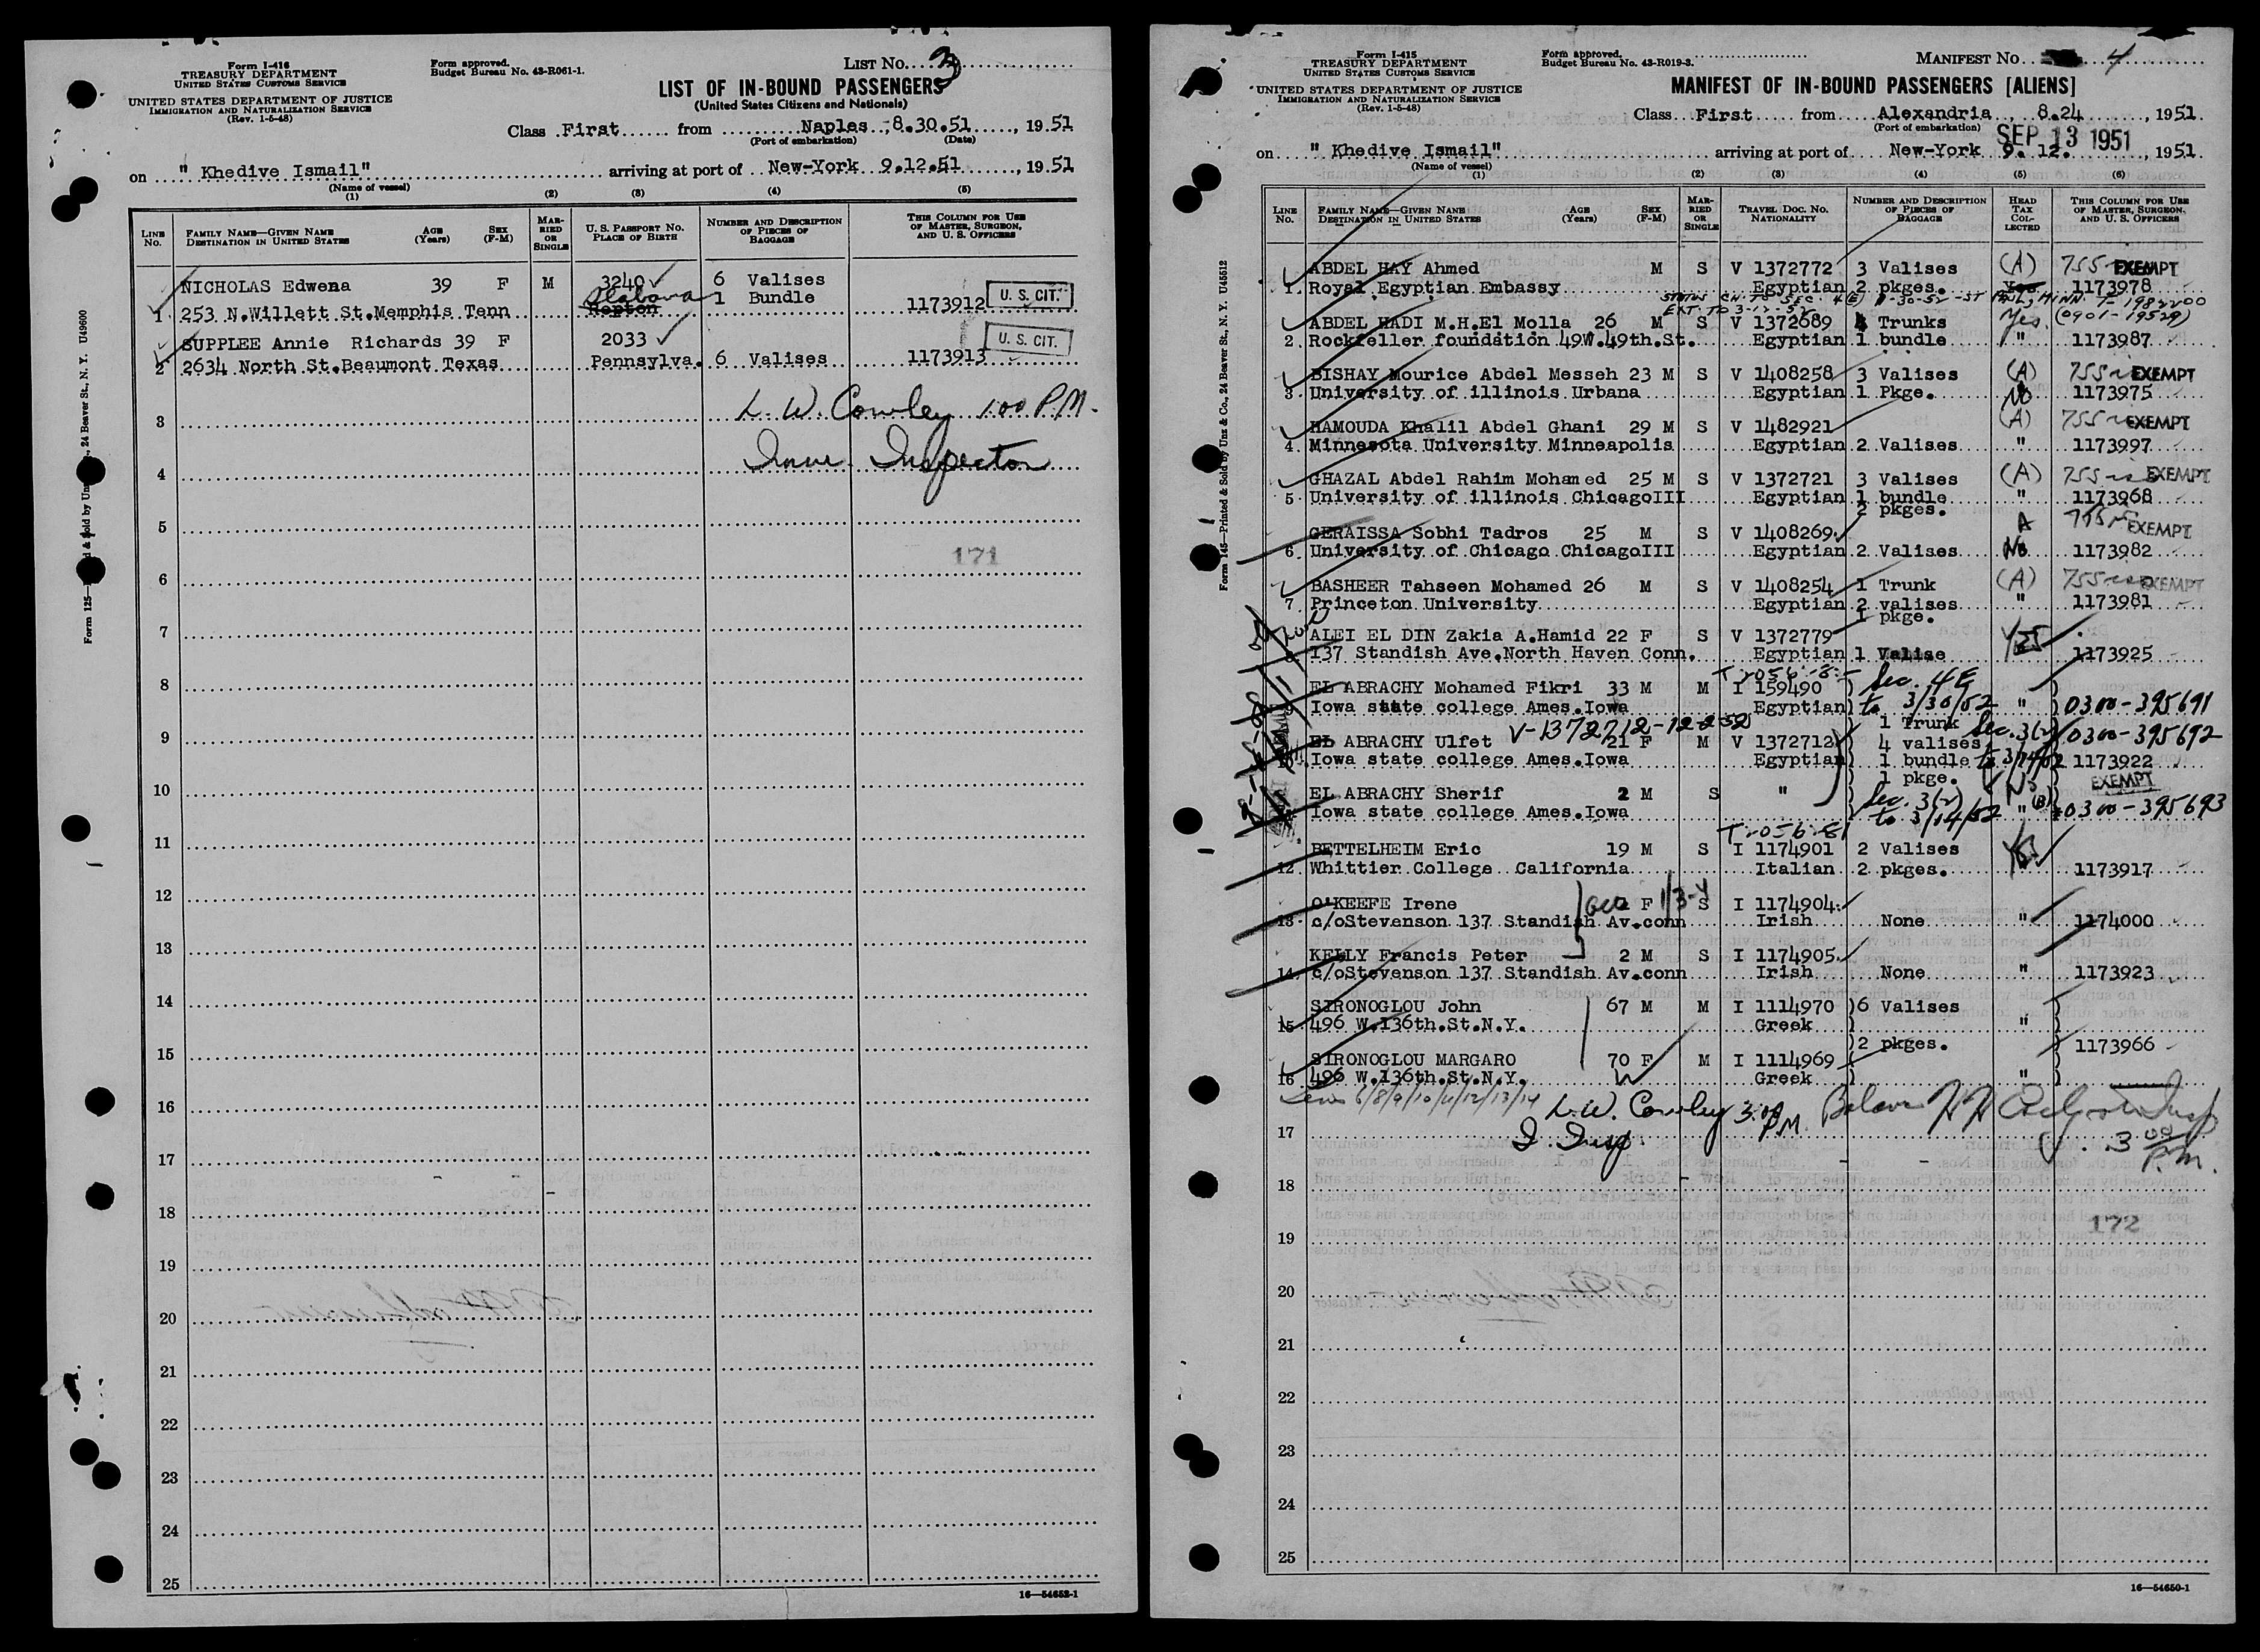 Form I-416
TREASURY DEPARTMENT
UNITED STATES CUSTOMS SERVICE
UNITED STATES DEPARTMENT OF JUSTICE
IMMIGRATION AND NATURALIZATION SERVICE
(Rev. 1-5-48)
Form approved.
Budget Bureau No. 43-R061-1.
LIST No. 3
LIST OF IN-BOUND PASSENGERS
(United States Citizens and Nationals)
Class First from Naples, 8.30.51, 19 51
(Port of embarkation) (Date)
on " Khedive Ismail" arriving at port of New-York 9.12.51, 19 51
(Name of vessel)
(1) (2) (3) (4) (5)
LINE No. FAMILY NAME—GIVEN NAME DESTINATION IN UNITED STATES AGE (Years) SEX (F-M) MARRIED OR SINGLE U. S. PASSPORT NO. PLACE OF BIRTH NUMBER AND DESCRIPTION OF PIECES OF BAGGAGE THIS COLUMN FOR USE OF MASTER, SURGEON, AND U. S. OFFICERS
NICHOLAS Edwena 39 F M 3240 6 Valises
1 253 N.Willett St.Memphis Tenn Alabama Repton 1 Bundle 1173912 U. S. CIT.
SUPPLEE Annie Richards 39 F 2033 U. S. CIT.
2 2634 North St.Beaumont Texas Pennsylva. 6 Valises 1173913
3 L. W. Cowley 1:00 P.M.
4 Imm. Inspector
5
171
6
7
8
9
10
11
12
13
14
15
16
17
18
19
20
21
22
23
24
25
16—54652-1
Form I-415
TREASURY DEPARTMENT
UNITED STATES CUSTOMS SERVICE
UNITED STATES DEPARTMENT OF JUSTICE
IMMIGRATION AND NATURALIZATION SERVICE
(Rev. 1-5-48)
Form approved.
Budget Bureau No. 43-R019-3.
MANIFEST NO 4
MANIFEST OF IN-BOUND PASSENGERS [ALIENS]
Class First from Alexandria, 8.24, 19 51
(Port of embarkation) SEP 13 1951
on " Khedive Ismail" arriving at port of New-York 9. 12., 19 51
(Name of vessel)
(1) (2) (3) (4) (5) (6)
LINE No. FAMILY NAME—GIVEN NAME DESTINATION IN UNITED STATES AGE (Years) SEX (F-M) MARRIED OR SINGLE TRAVEL DOC. NO. NATIONALITY NUMBER AND DESCRIPTION OF PIECES OF BAGGAGE HEAD TAX COLLECTED THIS COLUMN FOR USE OF MASTER, SURGEON, AND U. S. OFFICERS
ABDEL HAY Ahmed M S V 1372772 3 Valises (A) 755 EXEMPT
1. Royal Egyptian Embassy Egyptian 2 pkges. Yes 1173978
ABDEL HADI M.H.El Molla 26 M S V 1372689 4 Trunks Yes. (0901-19529)
2. Rockfeller foundation 49W.49th.St. Egyptian 1 bundle " 1173987
BISHAY Mourice Abdel Messeh 23 M S V 1408258 3 Valises (A) 755 EXEMPT
3. University of illinois Urbana Egyptian 1 Pkge. No 1173975
HAMOUDA Khalil Abdel Ghani 29 M S V 1482921 (A) 755 EXEMPT
4. Minnesota University Minneapolis Egyptian 2 Valises " 1173997
GHAZAL Abdel Rahim Mohamed 25 M S V 1372721 3 Valises (A) 755 EXEMPT
5. University of illinois ChicagoIII Egyptian 1 bundle " 1173968
2 pkges.
GERAISSA Sobhi Tadros 25 M S V 1408269 A 755 EXEMPT
6. University of Chicago ChicagoIII Egyptian 2 Valises No 1173982
BASHEER Tahseen Mohamed 26 M S V 1408254 1 Trunk (A) 755 EXEMPT
7. Princeton University Egyptian 2 valises " 1173981
1 pkge.
ALEI EL DIN Zakia A.Hamid 22 F S V 1372779 YES
8. 137 Standish Ave.North Haven Conn. Egyptian 1 Valise 1173925
EL ABRACHY Mohamed Fikri 33 M M I 159490 Sec. 4E
9. Iowa state college Ames.Iowa Egyptian to 3/30/52 " 0300-395691
V-1372712-12-2-52 1 Trunk Sec. 3(2) 0300-395692
EL ABRACHY Ulfet 21 F M V 1372712 4 valises
10. Iowa state college Ames.Iowa Egyptian 1 bundle to 3/14/52 1173922
1 pkge. No EXEMPT
EL ABRACHY Sherif 2 M S " Sec. 3(2) (B)
Iowa state college Ames.Iowa to 3/14/52 " 0300-395693
BETTELHEIM Eric 19 M S I 1174901 2 Valises Yes
12. Whittier College California Italian 2 pkges. 1173917
O'KEEFE Irene F S I 1174904
13. c/oStevenson 137 Standish Av.conn Irish None " 1174000
KELLY Francis Peter 2 M S I 1174905
14. c/oStevenson 137 Standish Av.conn Irish None " 1173923
SIRONOGLOU John 67 M M I 1114970 6 Valises
15. 496 W.136th.St.N.Y. Greek "
2 pkges. 1173966
SIRONOGLOU MARGARO 70 F M I 1114969
16. 496 W.136th.St.N.Y. Greek "
6/8/9/10/11/12/13/14 L.W. Cowley 3:00 P.M. Balance
17 I. Insp. 3 00 P.M.
18
172
19
20
21
22
23
24
25
16—54650-1